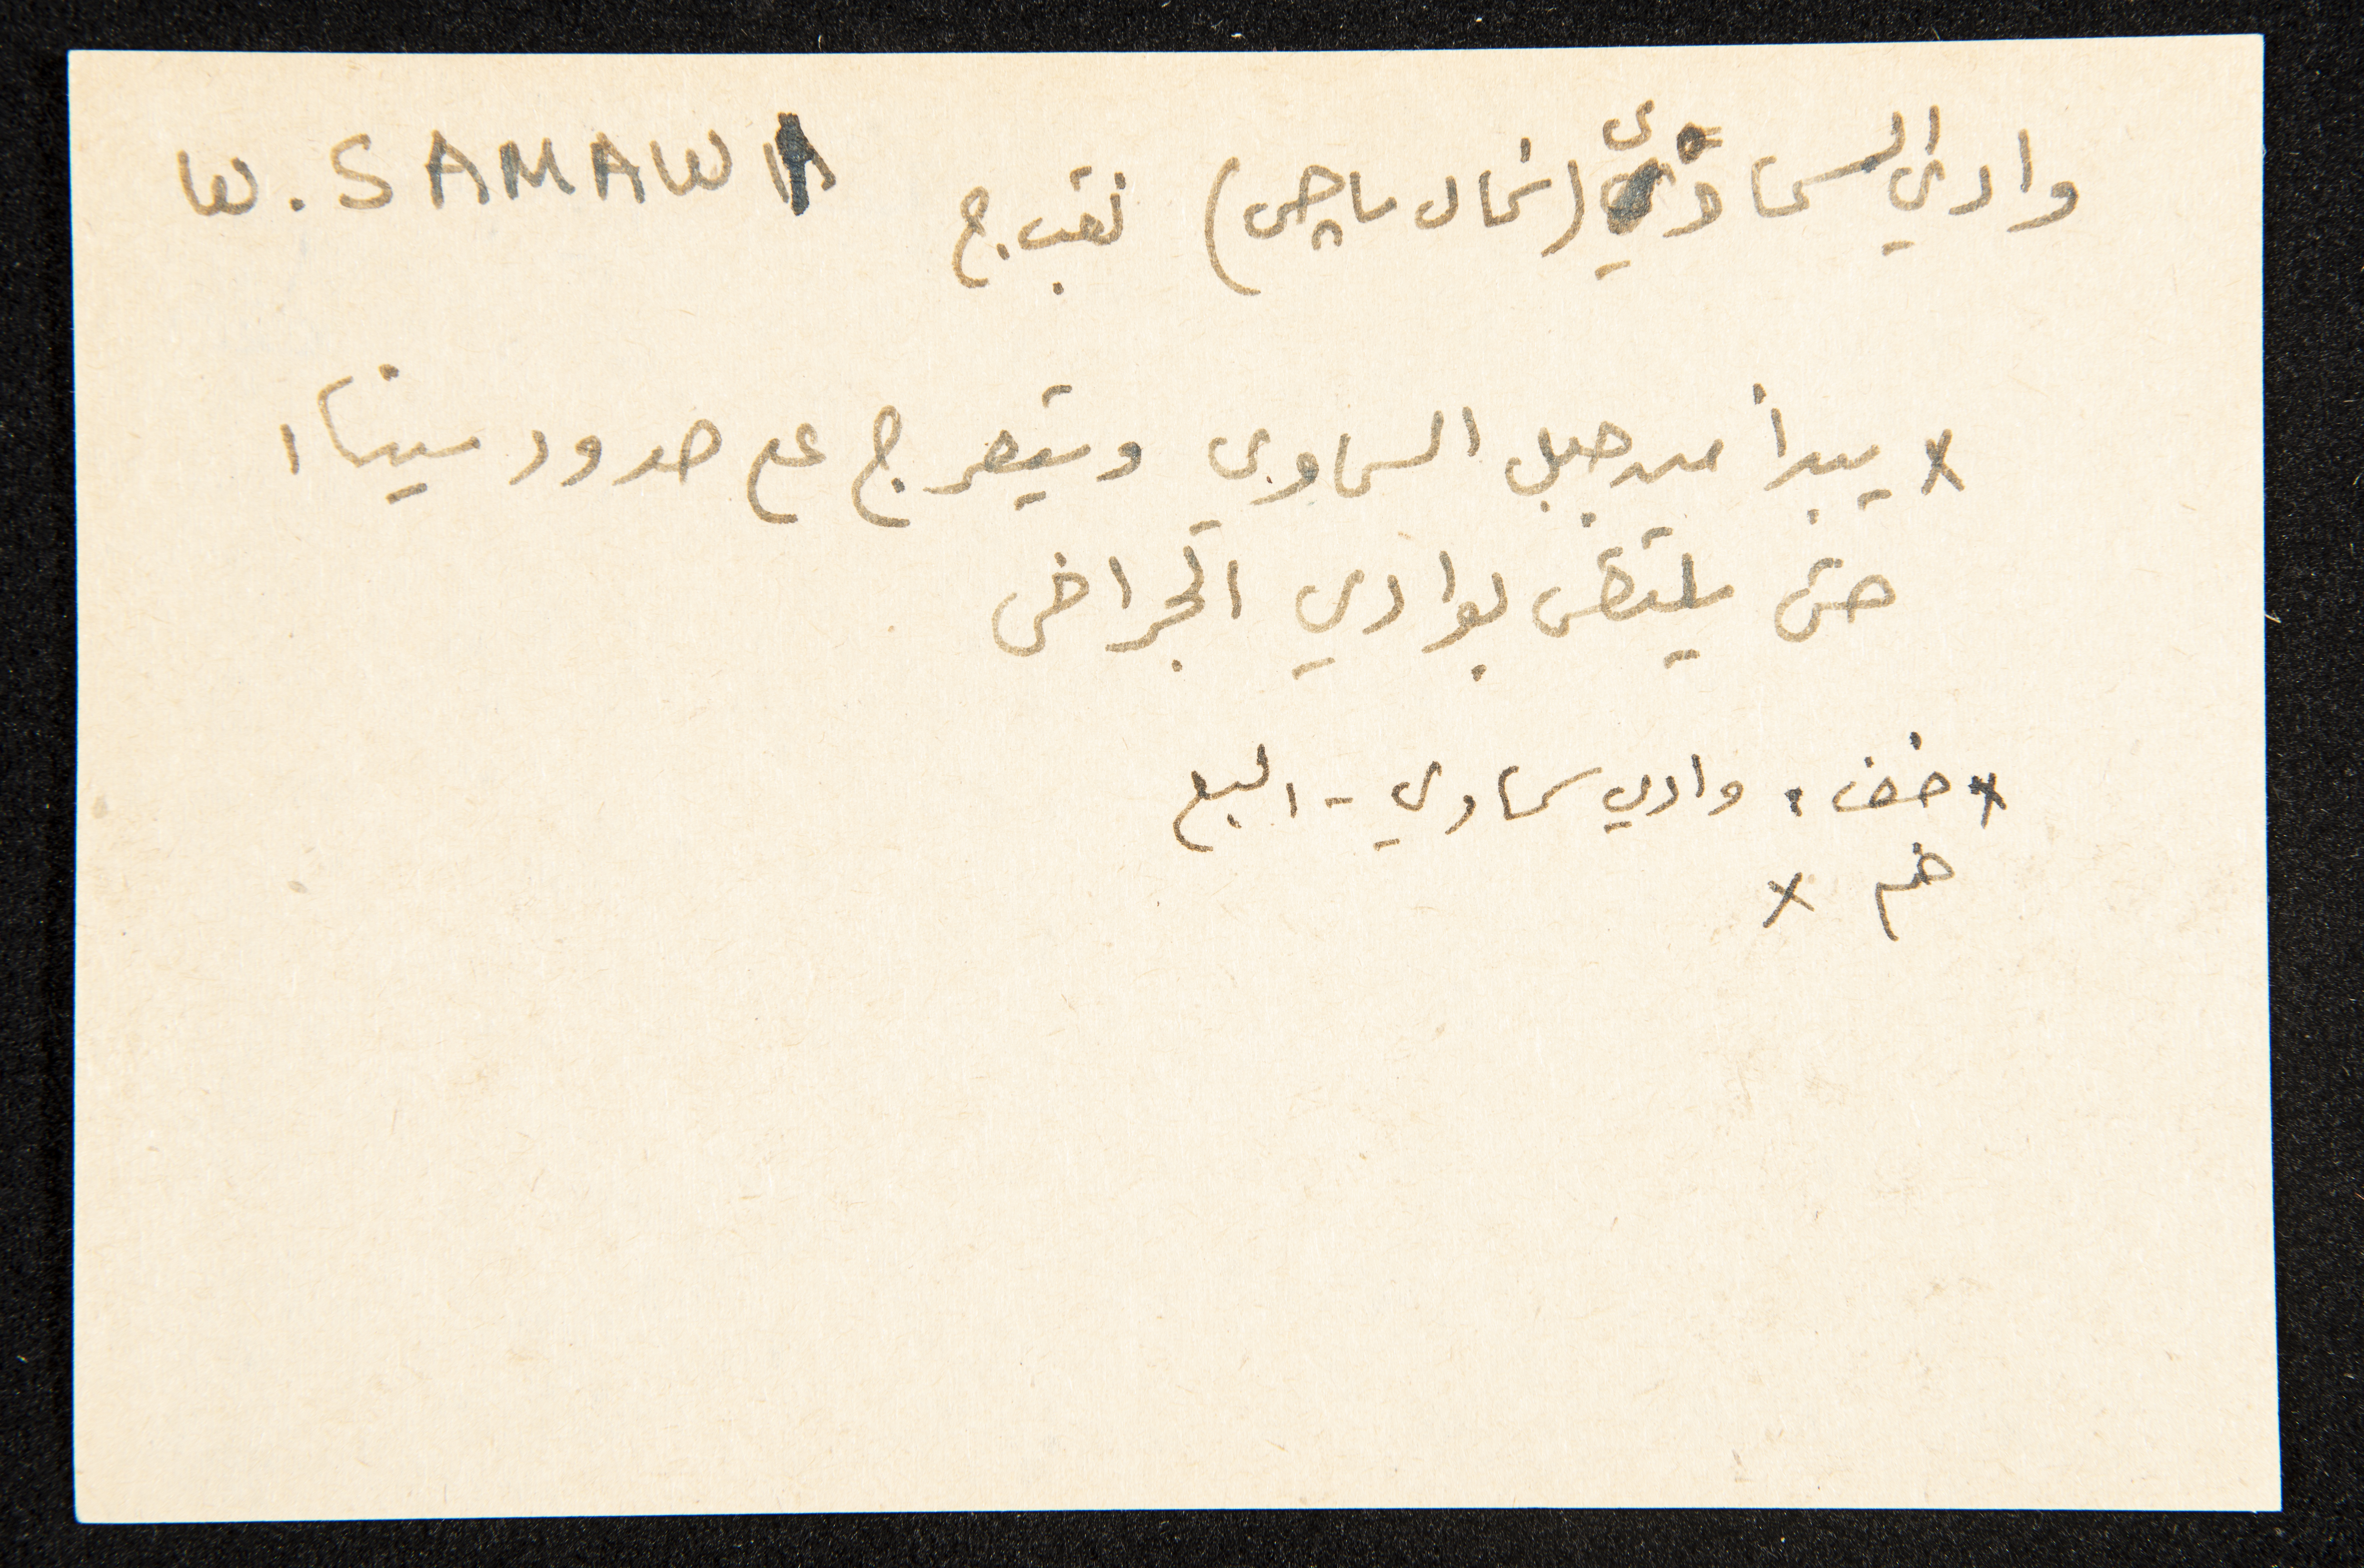 وادي السماوي (شمال ) نقب. ج W. SAMAWI
x يبدأ من جبل السماوي ويتعرج مع حدود سيناا
حتى يلتقى بوادي الجرافى
x خف: وادي سماوي - البع
خم x